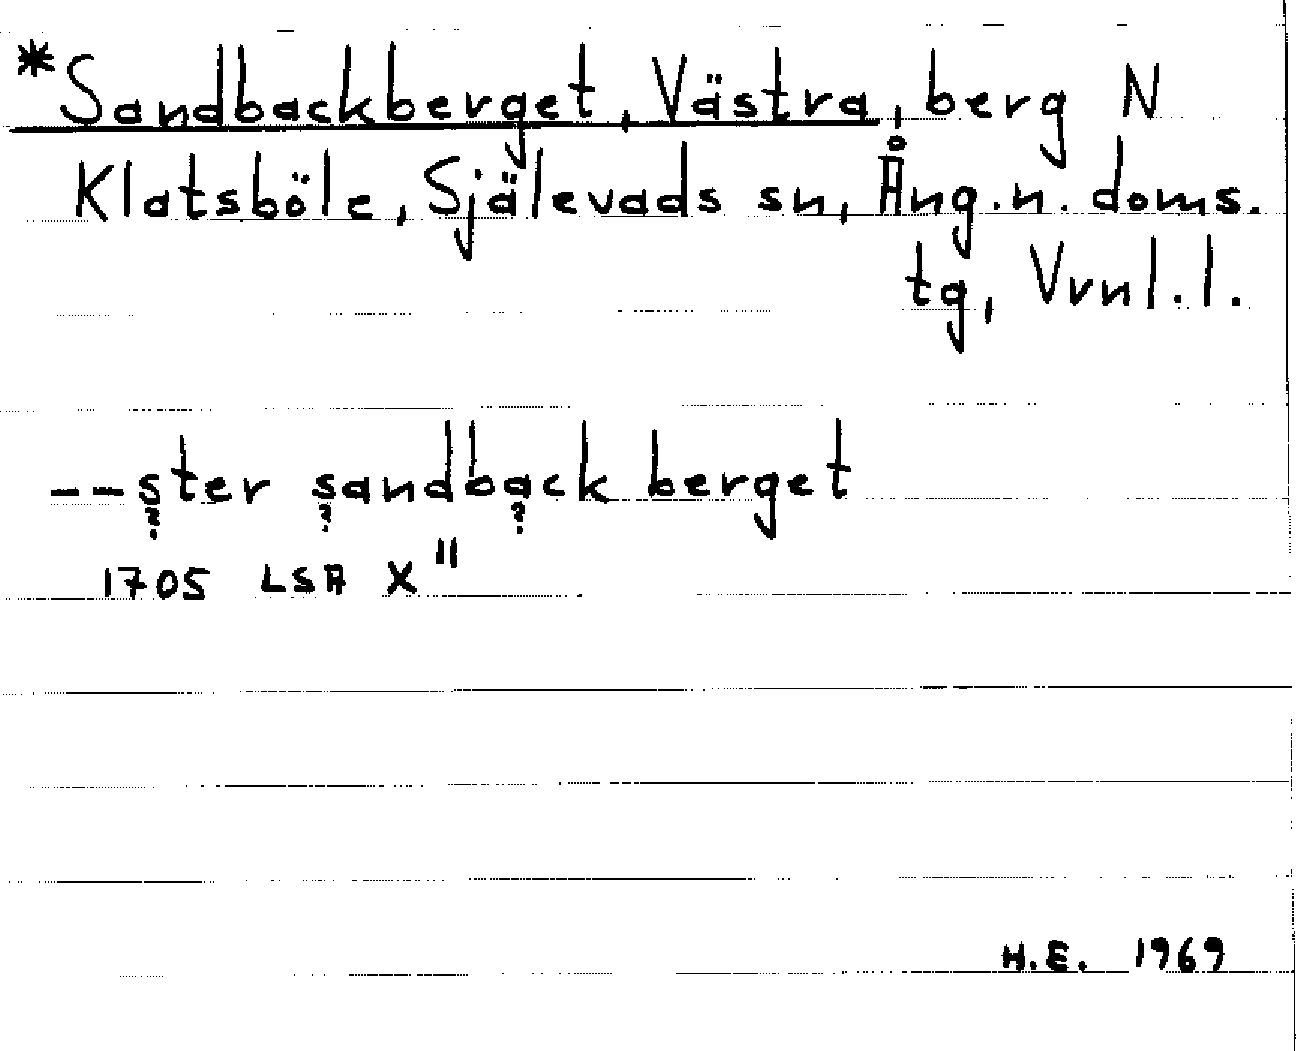 *Sandbackberget, Västra, berg N
Klatsböle, Själevads sn, Ång.n. doms.
tg, Vrnl.l.
--ster sandback berget
? ? ?
1705 LSA X"
H.E. 1969